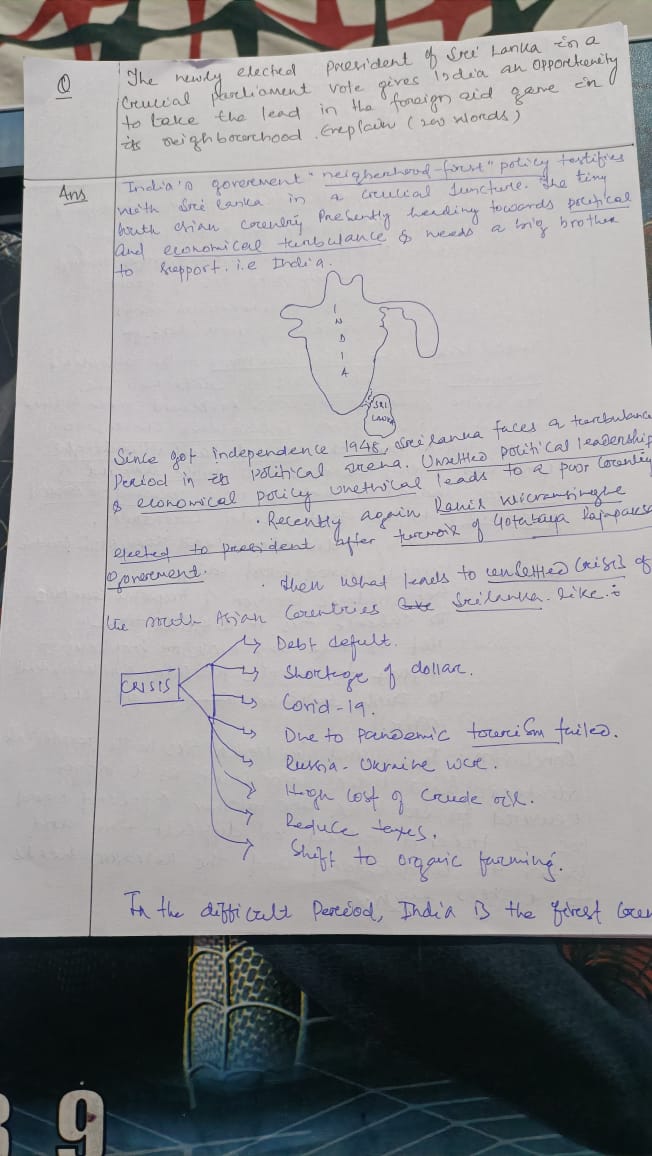 Q The newly elected president of Sri Lanka in a
crucial parliament vote gives India an opportunity
to take the lead in the foreign aid game in
its neighbourhood. Explain (200 words)
Ans India's goverement "neighberhood-first" policy testifies
with Sri Lanka in a crucial Juncture. The tiny
South Asian country Presently heading towards political
and economical turbulance & needs a big brother
to support. i.e India.
INDIA
SRI
LANKA
Since got independence 1948, Sri lanka faces a turbulance
Period in its political arena. Unsettled political leadership
& economical policy unethical leads to a poor country
. Recently again Ranil wicramsinghe
elected to president after turmoil of Gotabaya Rajapaksa
Goverement.
. then what leads to unsettled crisis of
the south Asian Countries Srilanka. like :
CRISIS
→ Debt defult.
→ Shortage of dollar.
→ Covid-19.
→ Due to pandemic tourism failed.
→ Russia-Ukraine war.
→ High cost of crude oil.
→ Reduce taxes.
→ Shift to organic farming.
In the difficult Period, India is the first coun
9